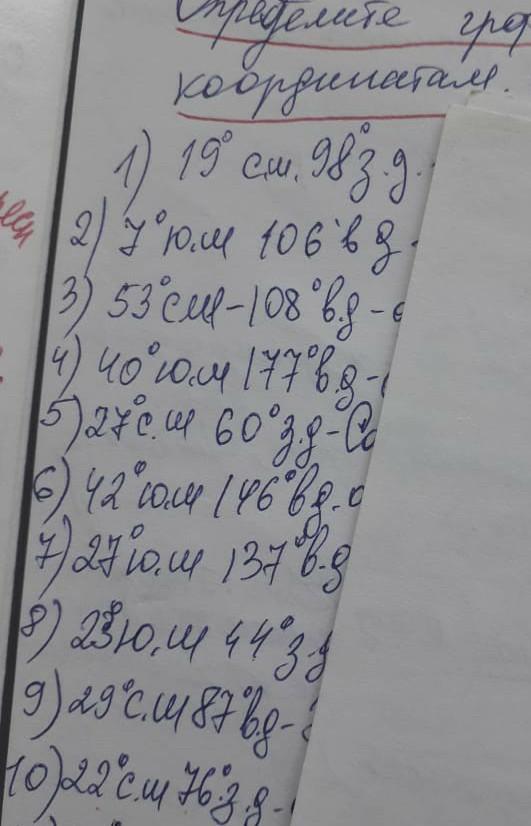 Определите
координатам.
1) 19° с.ш. 98° з.д.
2) 7° ю.ш 106° в д -
3) 53° сш - 108° в.д -
4) 40° ю.ш 177° в.д -
5) 27° с.ш 60° з.д - Са
6) 42° ю.ш 146° в д. о
7) 27° ю.ш 137° в.д
8) 23° ю.ш 44° з.д
9) 29° с.ш 87° в.д -
10) 22° с.ш 76° з.д -